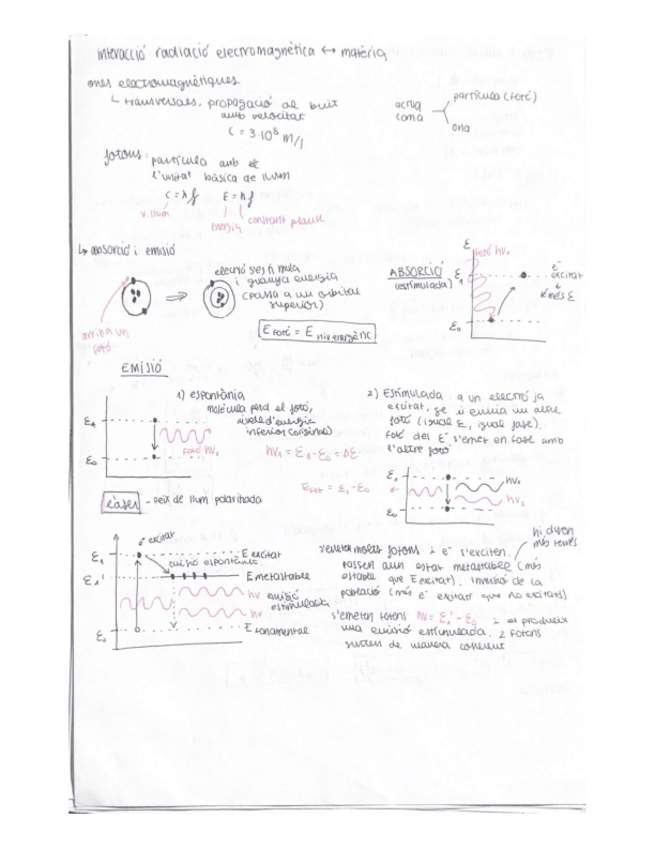 interacció radiació electromagnètica ↔ matèria
ones electromagnètiques
↳ transversals, propagació al buit
amb velocitat
c = 3·10⁸ m/s
actua
com a
partícula (fotó)
ona
fotons: partícula amb
l'unitat bàsica de llum
c = λf E = hf
v. llum
energia
constant planck
↳ absorció i emisió
arriba un
fotó
electró s'estimula
i guanya energia
(passa a un orbital
superior)
E fotó = E niv energètic
ABSORCIÓ
(estimulada)
E
fotó hν₀
E₁
E₀
e⁻
excitat
més E
EMISIÓ
1) espontània
molècula perd el fotó,
nivell d'energia
inferior (original)
hν₁ = E₁-E₀ = ΔE
E₁
E₀
fotó hν₁
2) Estimulada. a un electró ja
excitat, se li envia un altre
fotó (igual E, igual fase).
Fotó del E⁻ s'emet en fase amb
l'altre fotó
= E₁-E₀
E₁
E₀
hν₁
hν₂
làser - feix de llum polaritzada
e⁻ excitat
E₁
E excitat
emisió espontània
E₁'
E metastable
hν
hν
emisió
estimulada
E₀
E fonamental
hi duren
més temps
s'envien molts fotons i e⁻ s'exciten.
Passen a un estat metastable (més
estable que E excitat). Inversió de la
població (més e⁻ excitats que no excitats)
s'emeten fotons hν = E₁'-E₀ i es produeix
una emisió estimulada. 2 fotons
surten de manera coherent